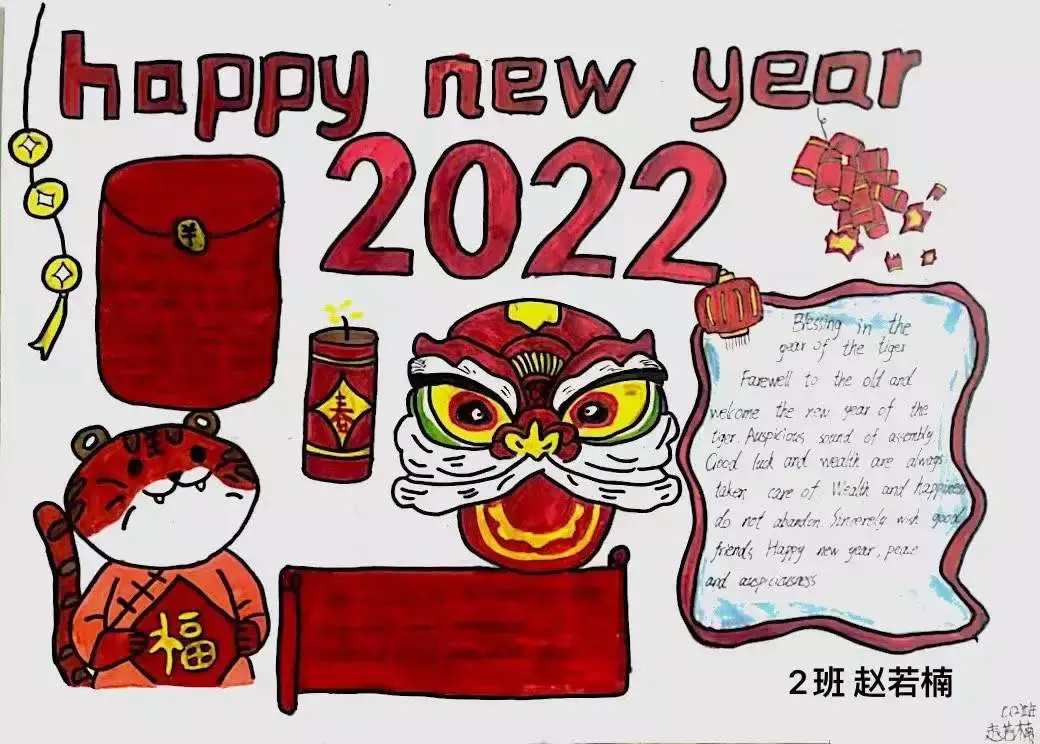 happy new year
2022
Blessing in the
year of the tiger
Farewell to the old and
welcome the new year of the
tiger. Auspicious sound of assembly.
Good luck and wealth are always
taken care of. Wealth and happiness
do not abandon. Sincerely wish good
friends, Happy new year, peace
and auspiciousness
春
福
2班 赵若楠
赵若楠